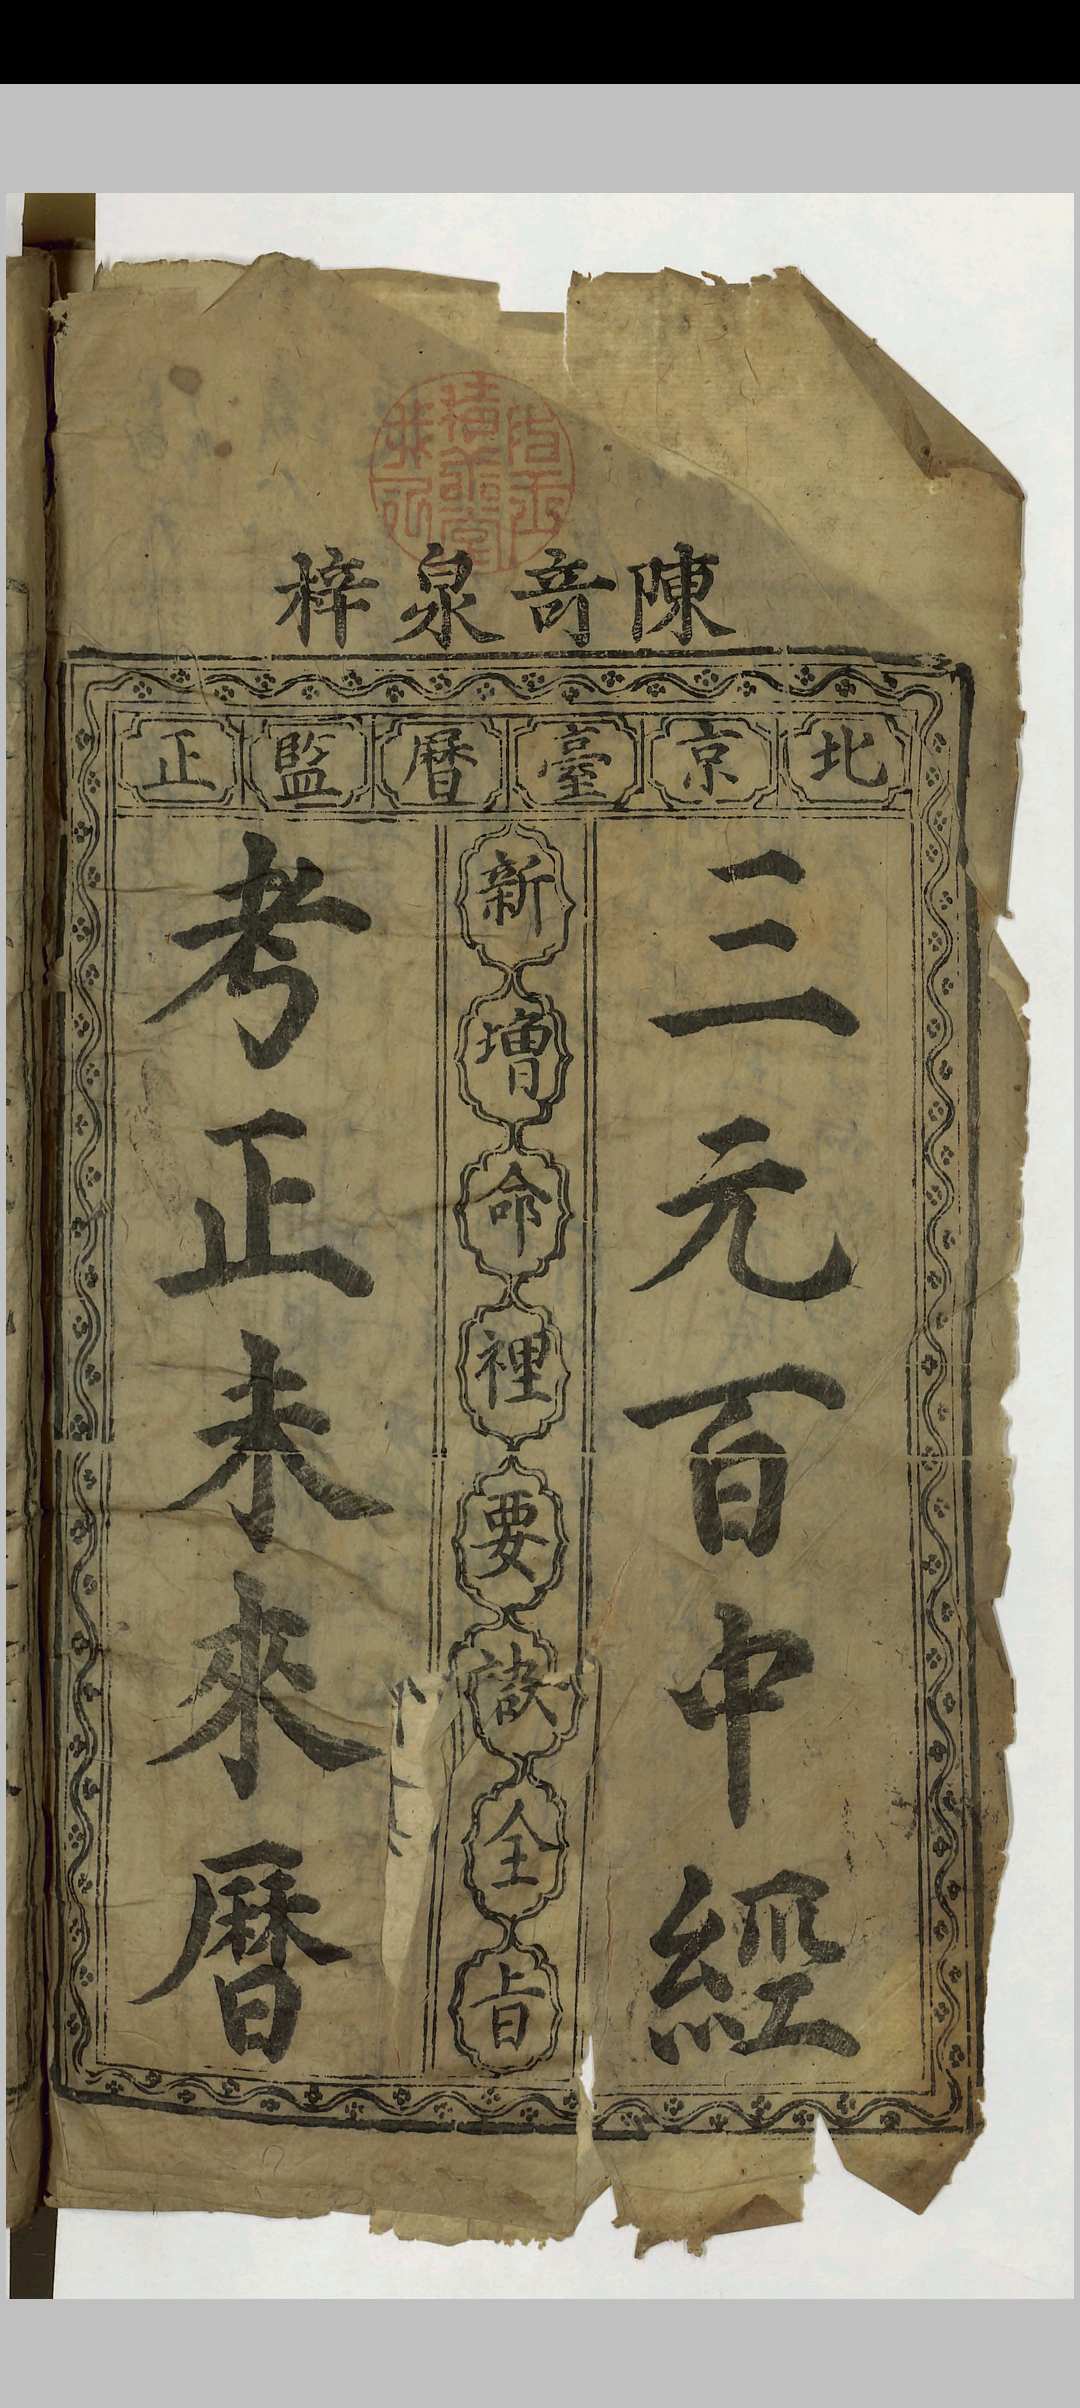 陳竒泉梓
北京臺曆監正
三元百中經
新增命裡要訣全㫖
考正未來曆